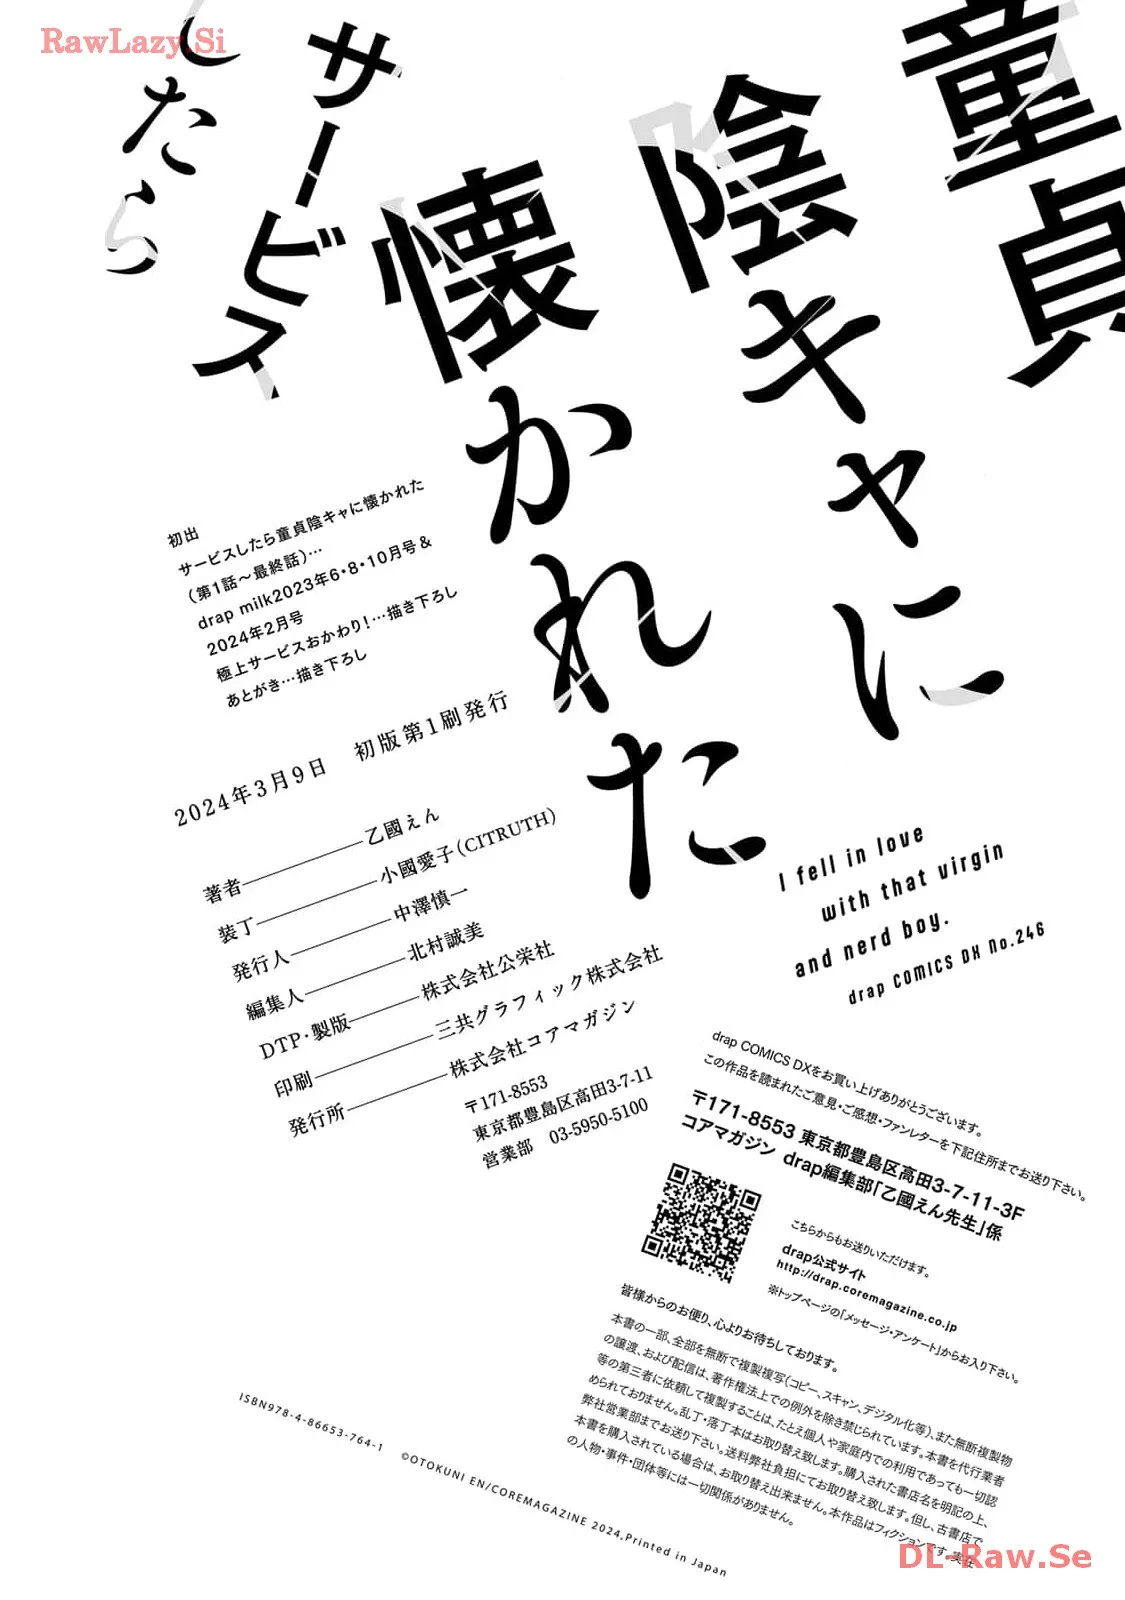 RawLazy.Si
サービスしたら
童貞
陰キャに
懐かれた
初出
サービスしたら童貞陰キャに懐かれた
（第1話～最終話）…
drap milk2023年6・8・10月号＆
2024年2月号
極上サービスおかわり！…描き下ろし
あとがき…描き下ろし
2024年3月9日　初版第1刷発行
著者――乙國えん
装丁――小國愛子（CITRUTH）
発行人――中澤慎一
編集人――北村誠美
DTP・製版――株式会社公栄社
印刷――三共グラフィック株式会社
発行所――株式会社コアマガジン
〒171-8553
東京都豊島区高田3-7-11
営業部　03-5950-5100
I fell in love
with that virgin
and nerd boy.
drap COMICS DX No.246
drap COMICS DXをお買い上げありがとうございます。
この作品を読まれたご意見・ご感想・ファンレターを下記住所までお送り下さい。
〒171-8553 東京都豊島区高田3-7-11-3F
コアマガジン drap編集部「乙國えん先生」係
こちらからもお送りいただけます。
drap公式サイト
http://drap.coremagazine.co.jp
※トップページの「メッセージ・アンケート」からお入り下さい。
皆様からのお便り、心よりお待ちしております。
本書の一部、全部を無断で複製複写（コピー、スキャン、デジタル化等）、また無断複製物
の譲渡、および配信は、著作権法上での例外を除き禁じられています。本書を代行業者
等の第三者に依頼して複製することは、たとえ個人や家庭内での利用であっても一切認
められておりません。乱丁・落丁本はお取り替え致します。購入された書店名を明記の上、
弊社営業部までお送り下さい。送料弊社負担にてお取り替え致します。但し、古書店で
本書を購入されている場合は、お取り替え出来ません。本作品はフィクションです。実在
の人物・事件・団体等には一切関係がありません。
ISBN978-4-86653-764-1　©OTOKUNI EN/COREMAGAZINE 2024.Printed in Japan
DL-Raw.Se